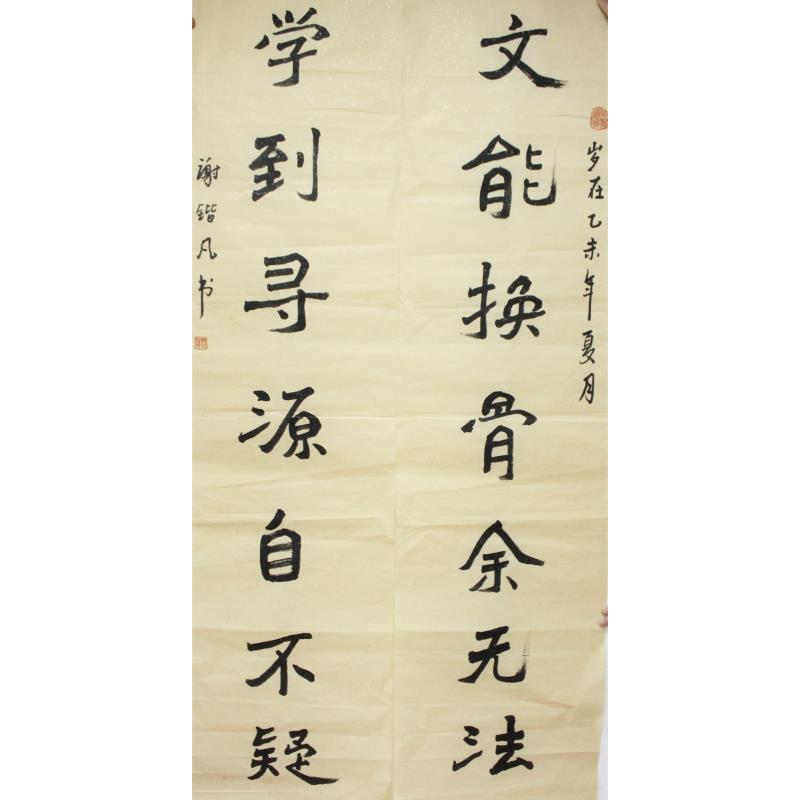 岁在乙未年夏月
文能换骨余无法
学到寻源自不疑
谢锴凡书